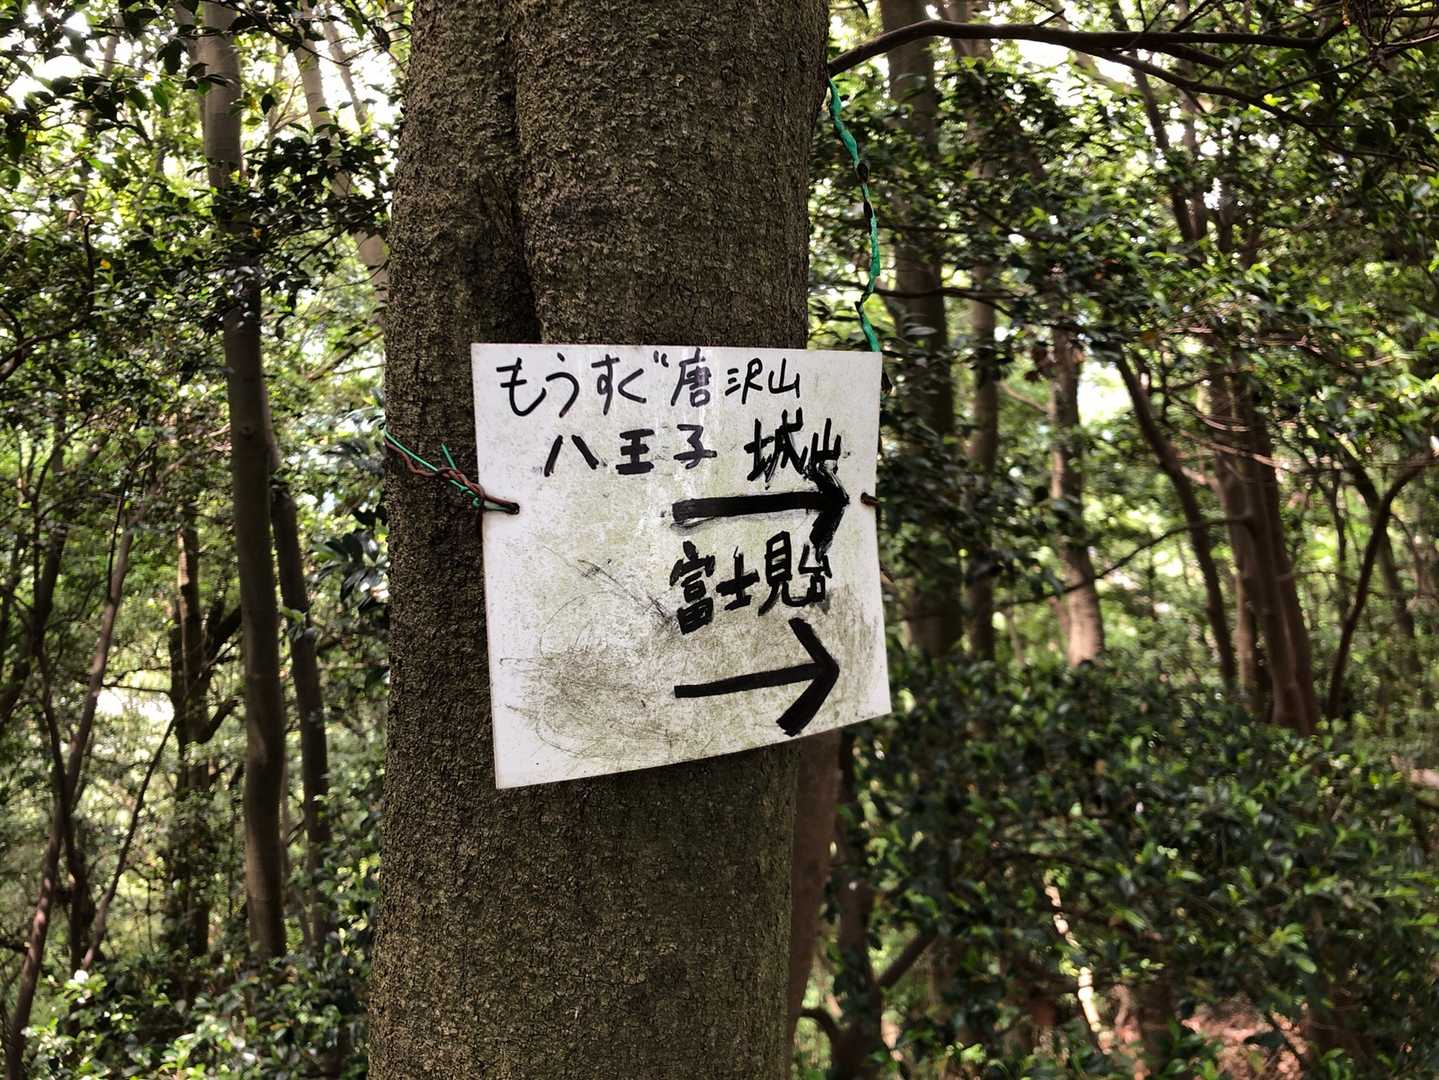 もうすぐ唐沢山
八王子 城山
→
富士見台
→